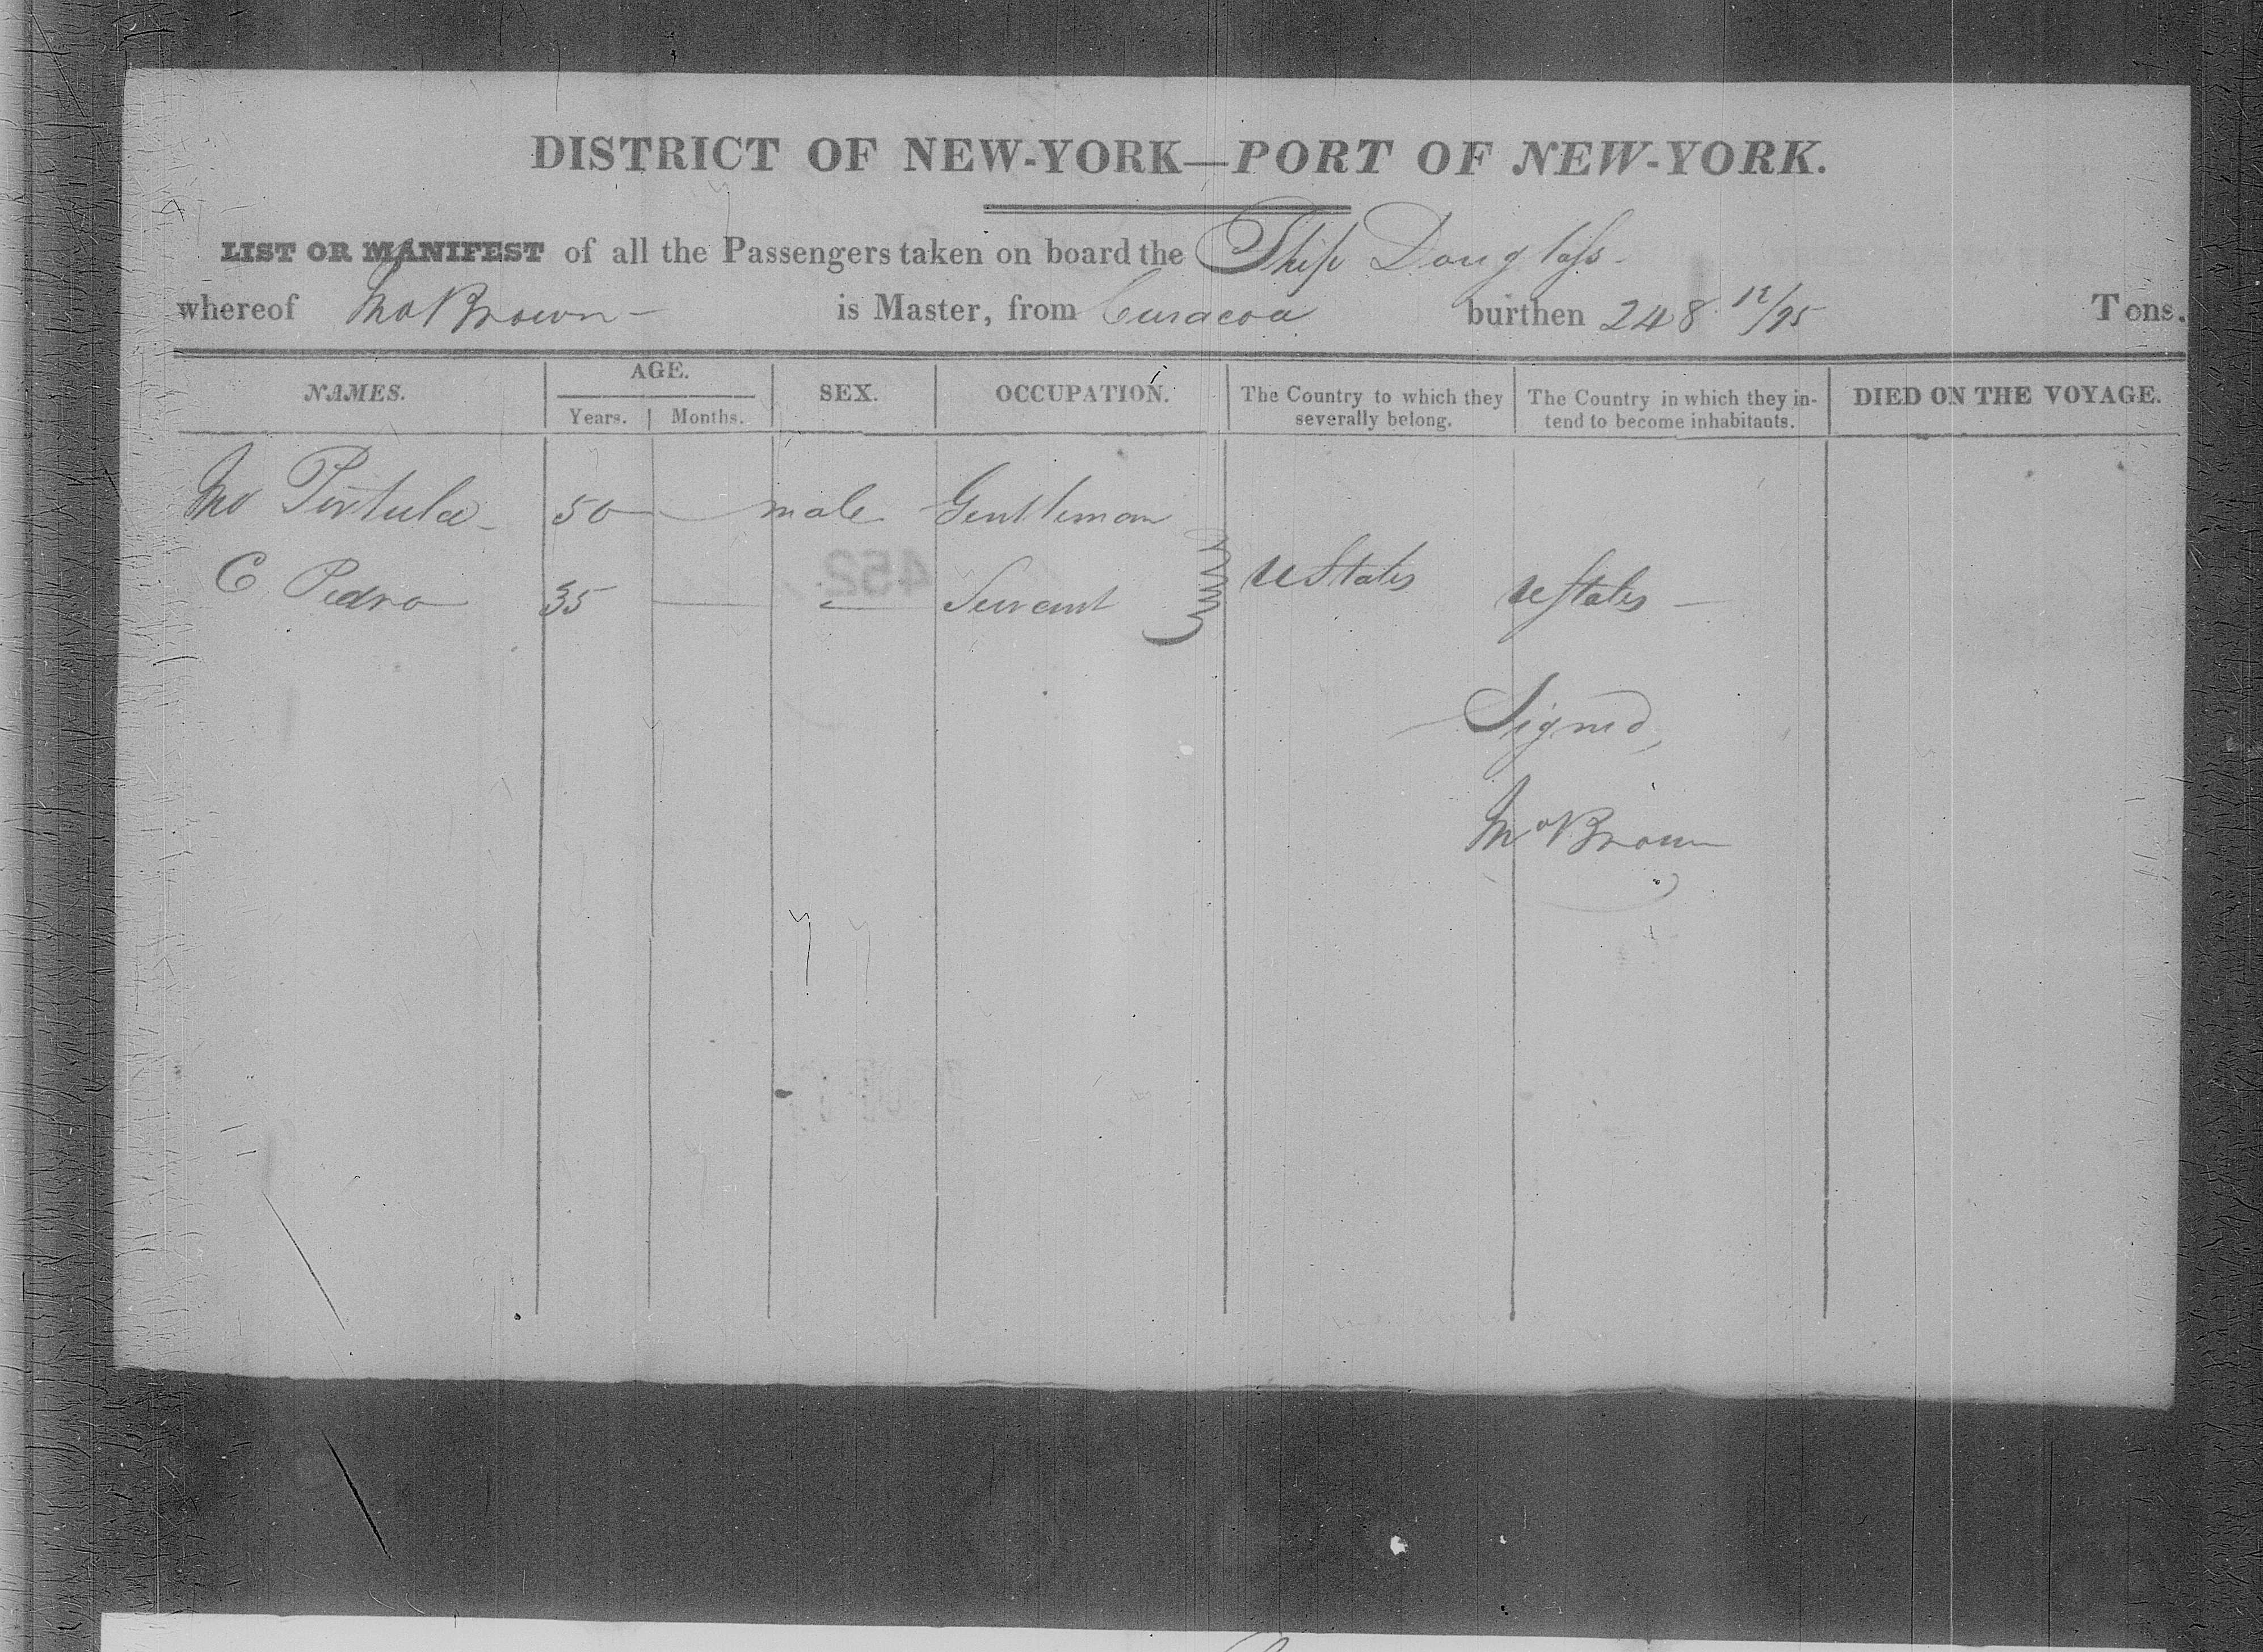 DISTRICT OF NEW-YORK—PORT OF NEW-YORK.
LIST OR MANIFEST of all the Passengers taken on board the Ship Douglass
whereof Brown is Master, from Curacoa burthen 248 12/95 Tons.
NAMES. AGE. SEX. OCCUPATION. The Country to which they severally belong. The Country in which they intend to become inhabitants. DIED ON THE VOYAGE.
Years. Months.
50 male Gentleman
C Pedro 35 Servant UStates UStates
452
Signed,
Brown